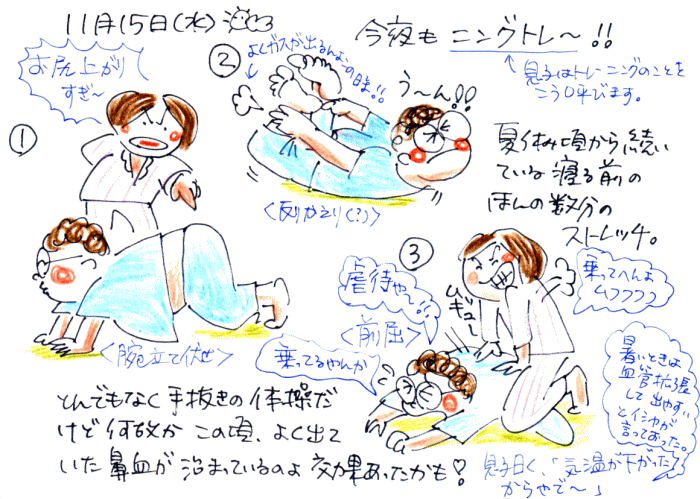 11月15日(水)
今夜も ニングトレ〜!!
息子はトレーニングのことを
こう呼びます。
夏休み頃から続い
ている 寝る前の
ほんの数分の
ストレッチ。
①
お尻上がり
すぎ〜
<腕立て伏せ>
②
よくガスが出るんよ
う〜ん!!
<反りかえり(?)>
③
虐待や〜!!
<前屈>
乗ってるやんか
ムギュー
乗ってへんよ
ムフフフフ
暑いときは
血管拡張
して出やすい
とイシャが
言っておった。
とんでもなく手抜きの体操だ
けど何故かこの頃、よく出て
いた鼻血が治まっているのよ 効果あったかも♡
息子曰く、「気温が下がった
からやで〜」